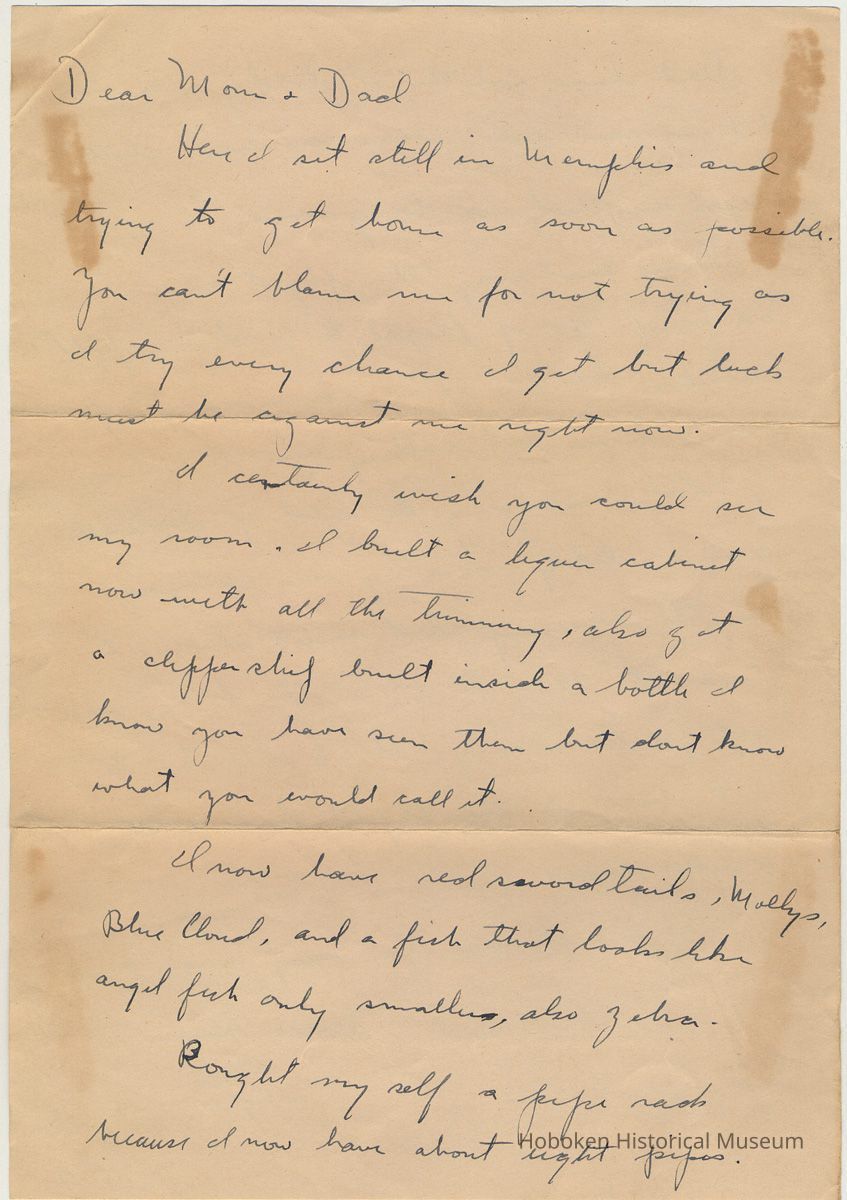 Dear Mom & Dad
Here I sit still in Memphis and
trying to get home as soon as possible.
You can't blame me for not trying as
I try every chance I get but luck
must be against me right now.
I certainly wish you could see
my room. I built a liquer cabinet
now with all the trimming, also got
a clippership built inside a bottle I
know you have seen them but dont know
what you would call it.
I now have red swordtails, Mollys,
Blue Cloud, and a fish that looks like
angel fish only smaller, also zebra.
Bought my self a pipe rack
because I now have about eight pipes.
Hoboken Historical Museum